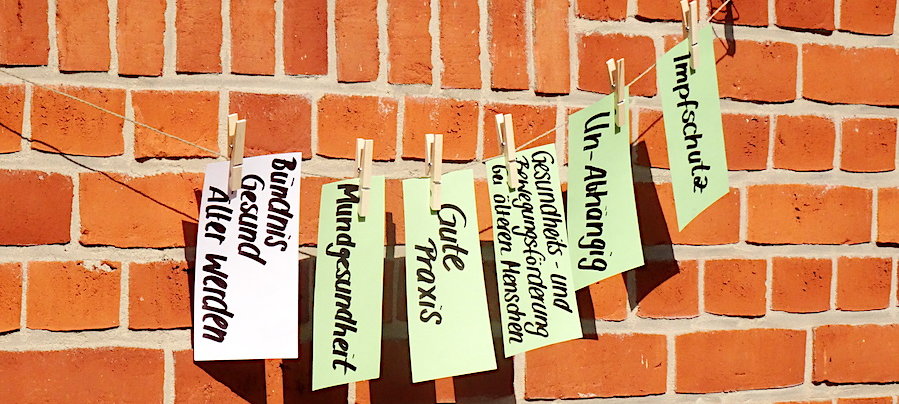 Bündnis
Gesund
Aller werden
Mundgesundheit
Gute
Praxis
Gesundheits- und
Bewegungsförderung
bei älteren Menschen
Un-Abhängig
Impfschutz